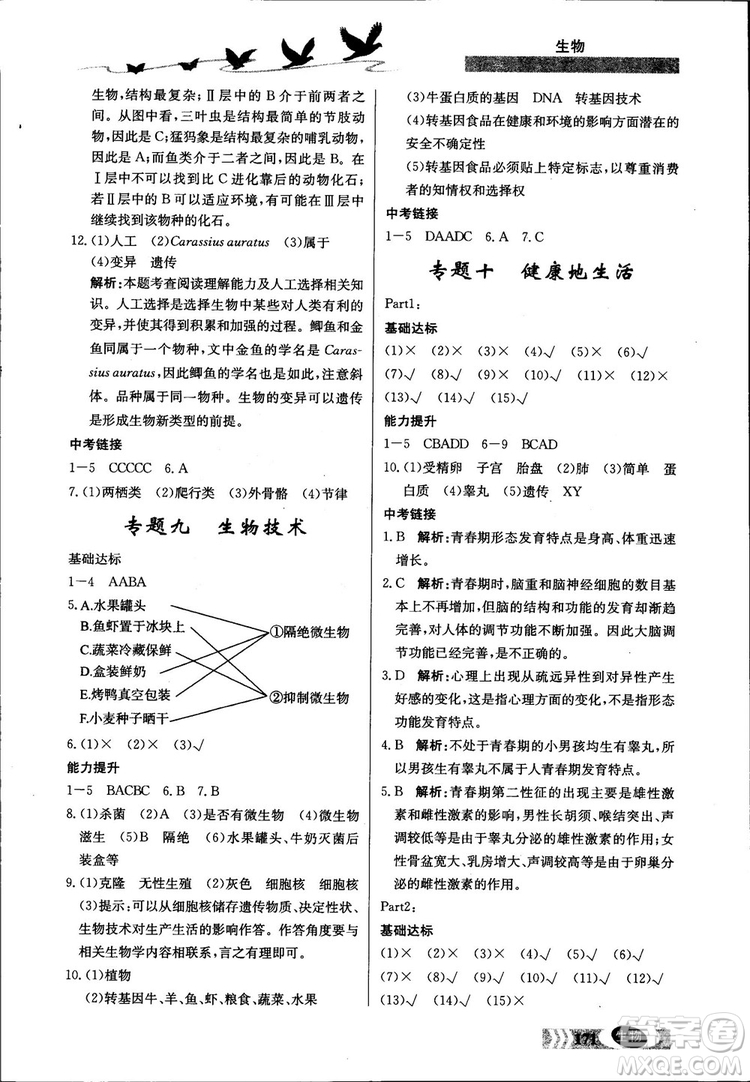 生物
生物,结构最复杂;Ⅱ层中的 B 介于前两者之
间。从图中看,三叶虫是结构最简单的节肢动
物,因此是 A;猛犸象是结构最复杂的哺乳动物,
因此是 C;而鱼类介于二者之间,因此是 B。在
Ⅰ层中不可能找到比 C 进化靠后的动物化石;
若Ⅱ层中的 B 可以适应环境,则可以在Ⅲ层中
继续找到该物种的化石。
12. (1)人工 (2)Carassius auratus (3)属于
(4)变异 遗传
解析:本题考查阅读理解能力及人工选择的相关知
识。人工选择是选择生物中某些对人类有利的
变异,并使它们得到积累和加强的过程。鲫鱼和金
鱼同属于一个物种,文中金鱼的学名是 Caras-
sius auratus,因此鲫鱼的学名也是如此,注意斜
体。品种属于同一物种。生物的变异可以遗传
是形成生物新类型的前提。
中考链接
1-5 CCCCC 6. A
7. (1)两栖类 (2)爬行类 (3)外骨骼 (4)节律
专题九 生物技术
基础达标
1-4 AABA
5. A.水果罐头
B.鱼虾置于冰块上
C.蔬菜冷藏保鲜
D.盒装鲜奶
E.烤鸭真空包装
F.小麦种子晒干
①隔绝微生物
②抑制微生物
6. (1)× (2)× (3)√
能力提升
1-5 BACBC 6. B 7. B
8. (1)杀菌 (2)A (3)是否有微生物 (4)微生物
滋生 (5)B 隔绝 (6)水果罐头、牛奶灭菌后
装盒等
9. (1)克隆 无性生殖 (2)灰色 细胞核 细胞核
(3)提示:可以从细胞核储存遗传物质、决定性状、
生物技术对生产生活的影响作答。作答角度要与
相关生物学内容相联系,言之有理即可。
10. (1)植物
(2)转基因牛、羊、鱼、虾、粮食、蔬菜、水果
(3)牛蛋白质的基因 DNA 转基因技术
(4)转基因食品在健康和环境的影响方面潜在的
安全不确定性
(5)转基因食品必须贴上特定标志,以尊重消费
者的知情权和选择权
中考链接
1-5 DAADC 6. A 7. C
专题十 健康地生活
Part1:
基础达标
(1)× (2)× (3)√ (4)√ (5)× (6)×
(7)√ (8)√ (9)√ (10)× (11)√ (12)×
(13)√ (14)√ (15)√
能力提升
1-5 CBADD 6-9 BCAD
10. (1)受精卵 子宫 胎盘 (2)肺 (3)简单 蛋
白质 (4)睾丸 (5)遗传 XY
中考链接
1. B 解析:青春期形态发育特点是身高、体重迅速
增长。
2. C 解析:青春期时,脑重和脑神经细胞的数目基
本不再增加,但脑的结构和功能的发育却渐趋
完善,对人体的调节功能大大增强。因此大脑调
节功能已经完善,是不正确的。
3. D 解析:心理上出现从疏远异性到对异性产生
好感的变化,这是指心理方面的变化,不是指形态
功能发育特点。
4. B 解析:不处于青春期的小男孩均生有睾丸,所
以男孩生有睾丸不属于人青春期发育的特点。
5. B 解析:青春期第二性征的出现主要是雌性激
素和雄性激素的影响,男性长胡须、喉结突出、声
调较低等是由于睾丸分泌的雄性激素的作用;女
性骨盆宽大、乳房增大、声调较高等是由于卵巢分
泌的雌性激素的作用。
Part2:
基础达标
(1)× (2)× (3)√ (4)× (5)√ (6)√
(7)× (8)× (9)× (10)√ (11)√ (12)√
(13)√ (14)√ (15)×
171
答案圈
MXQE.COM